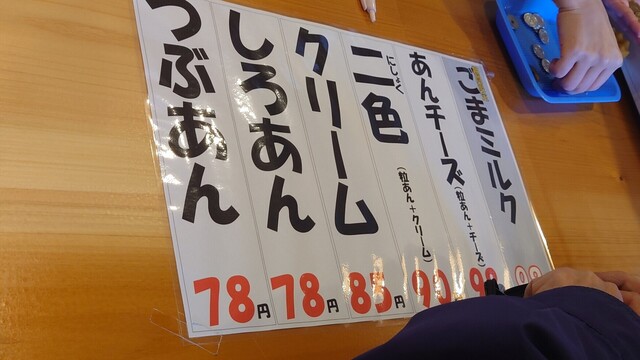 ごまミルク
あんチーズ
(粒あん+チーズ)
にしょく
二色
(粒あん+クリーム)
85円
クリーム
78円
しろあん
78円
つぶあん